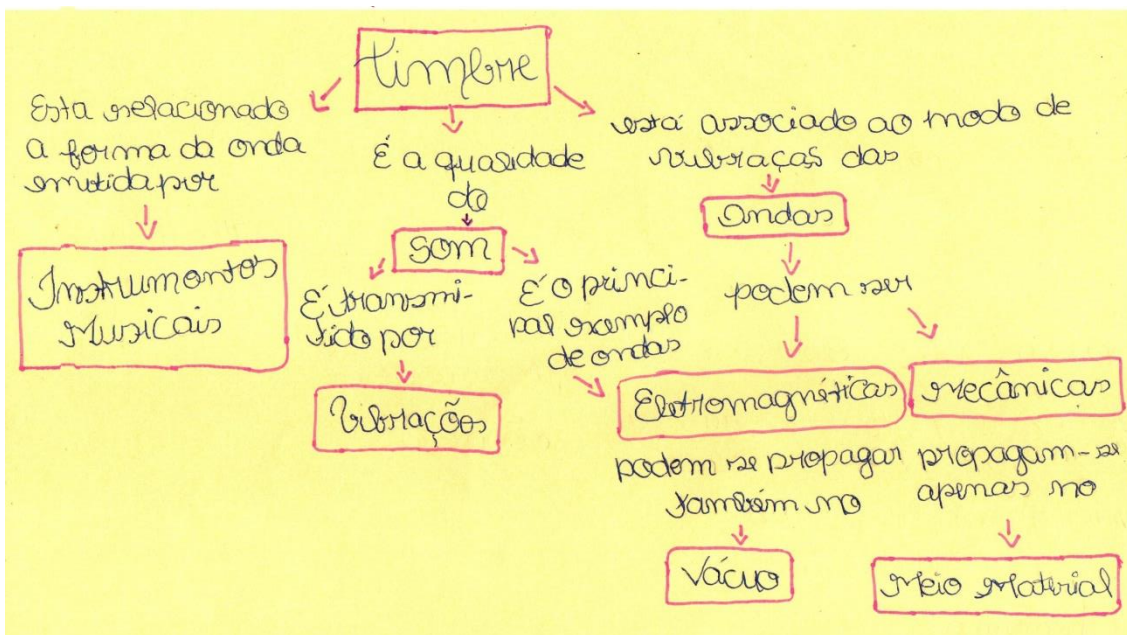 timbre
Esta relacionado
a forma da onda
emitida por
Instrumentos
Musicais
É a qualidade
do
som
É transmi-
tido por
Vibrações
É o princi-
pal exemplo
de ondas
está associado ao modo de
vibração das
Ondas
podem ser
Eletromagnéticas
podem se propagar
também no
Vácuo
Mecânicas
propagam-se
apenas no
Meio Material